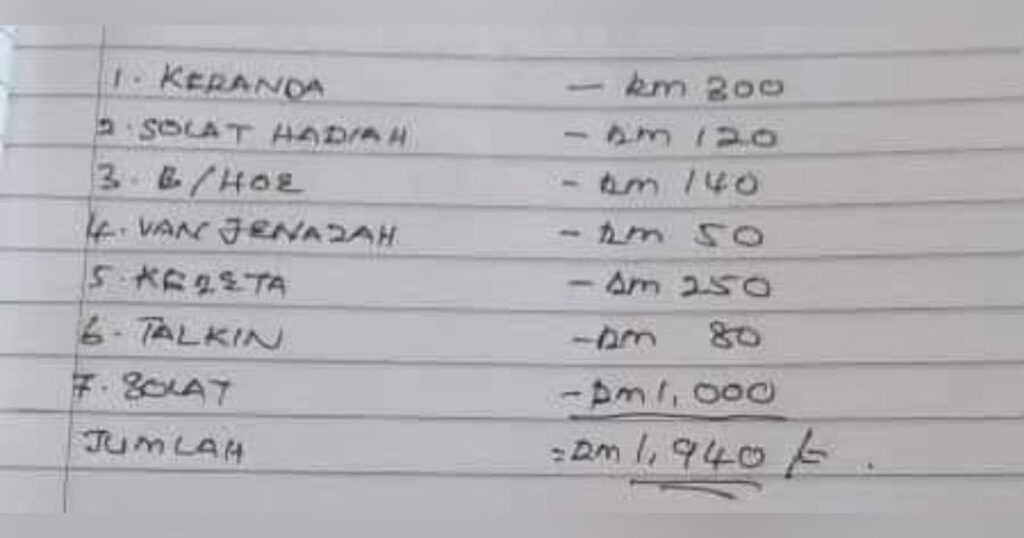 1. KERANDA - RM 300
2. SOLAT HADIAH - RM 120
3. B/HOE - RM 140
4. VAN JENAZAH - RM 50
5. KERETA - RM 250
6. TALKIN - RM 80
7. SOLAT - RM 1,000
JUMLAH = RM 1,940